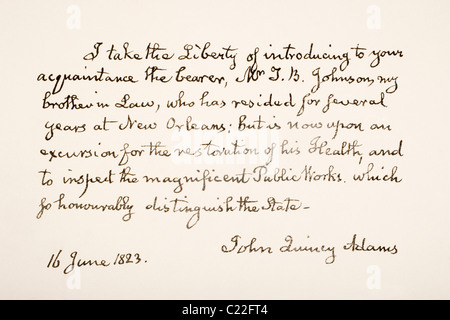 I take the Liberty of introducing to your
acquaintance the bearer, Mr T. B. Johnson, my
brother in Law, who has resided for several
years at New Orleans; but is now upon an
excursion for the restoration of his Health, and
to inspect the magnificent Public Works. which
so honourably distinguish the State—
John Quincy Adams
16 June 1823.
alamy
alamy
Image ID: C22FT4
www.alamy.com